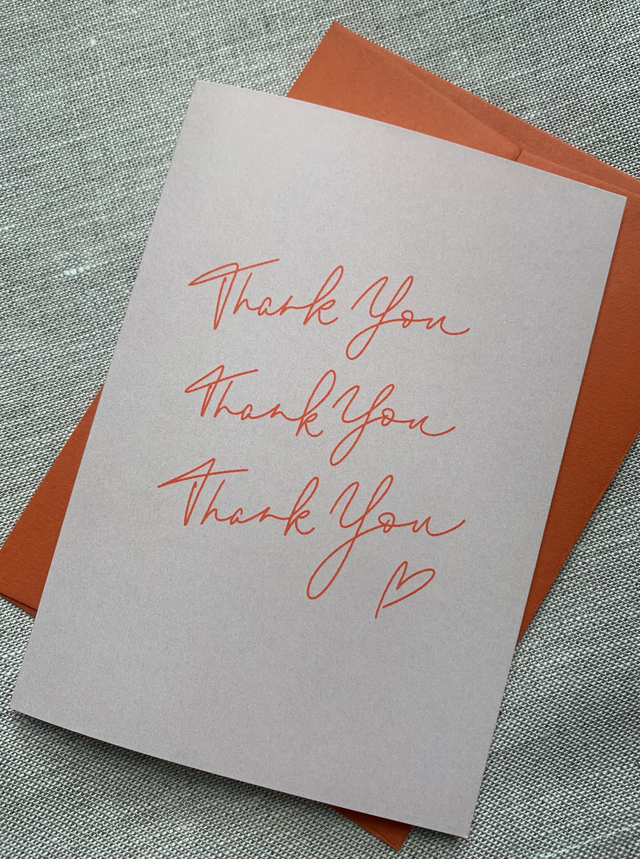 Thank You
Thank You
Thank You